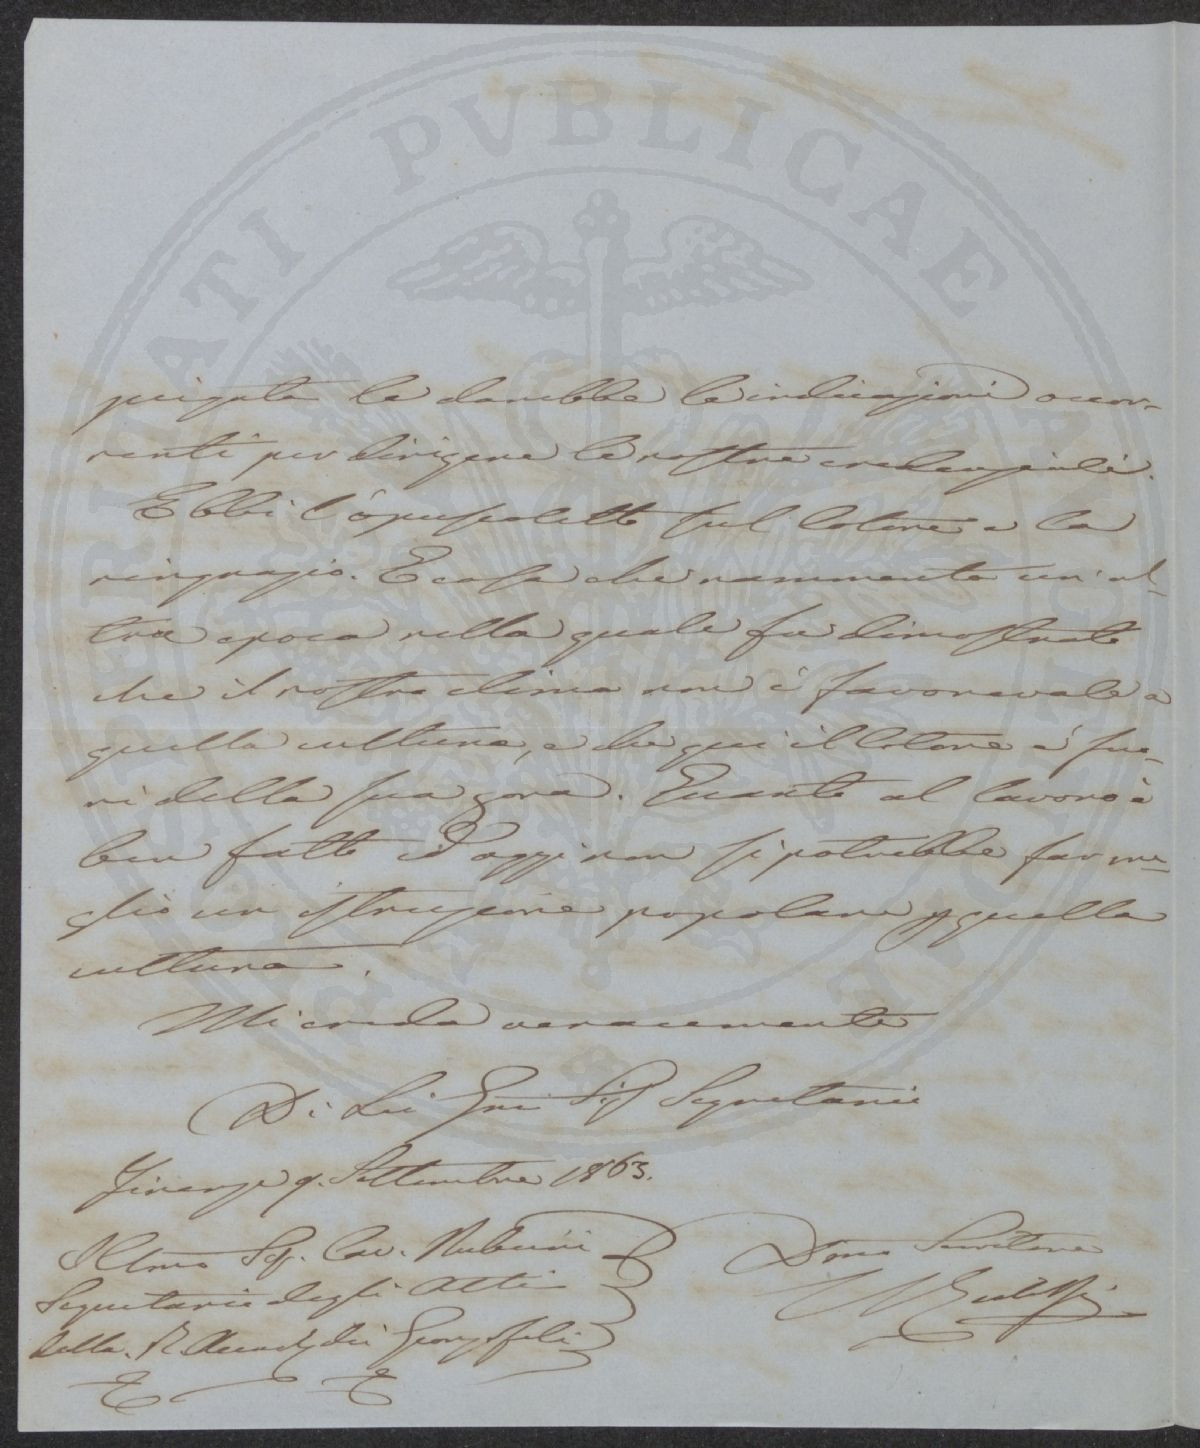 PROSPERITATI PVBLICAE AVGENDAE
le darebbe le indicazioni occor-
renti per dirigere le nostre credenziali.
Ebbi l'opuscoletto sul Cotone e la
ringrazio. È cosa che rammenta un'al-
tra epoca nella quale fu dimostrato
che il nostro clima non è favorevole a
quella cultura, e che qui il Cotone è fuo-
ri della sua zona. Quanto al lavoro è
ben fatto ed oggi non si potrebbe far me-
glio un istruzione popolare p quella
cultura.
Mi creda veracemente
Di Lei Sig Segretario
Firenze 9. Settembre 1863.
Illmo Sig. Cav. Rubieri
Segretario degli Atti
della R. Accad dei Georgofili
Dmo Servitore